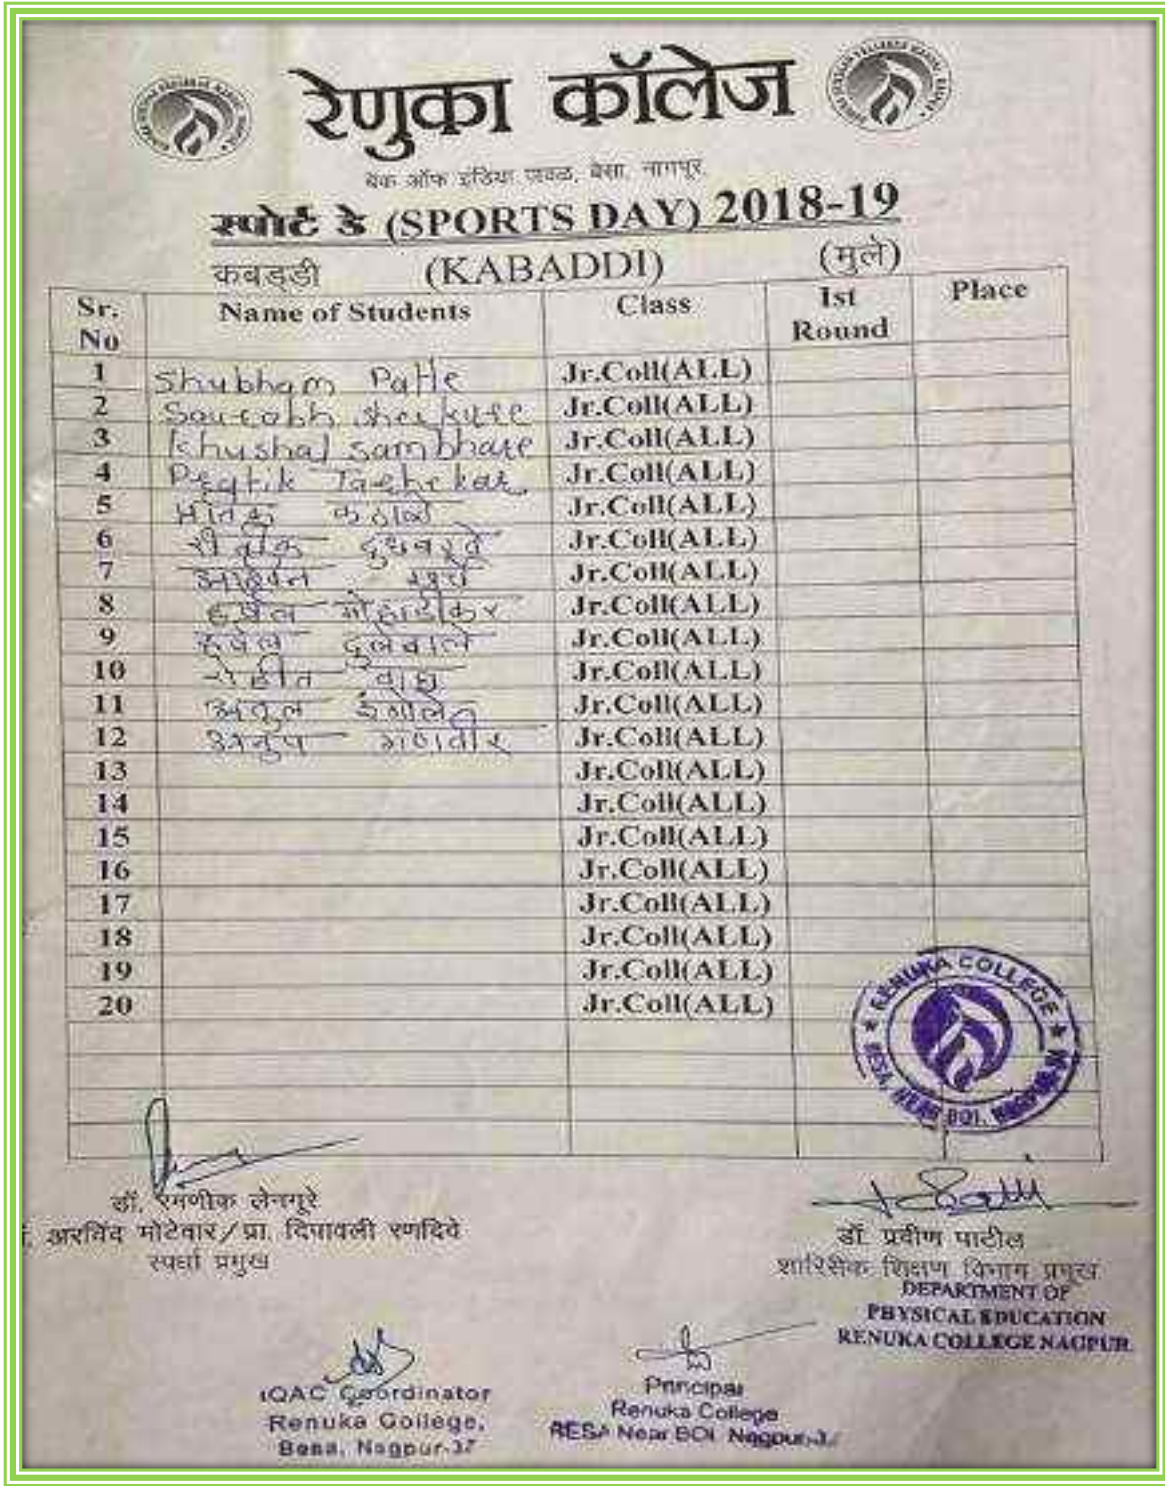 रेणुका कॉलेज
बँक ऑफ इंडिया जवळ, बेसा, नागपूर.
स्पोर्ट डे (SPORTS DAY) 2018-19
कबड्डी (KABADDI) (मुले)
Sr. No Name of Students Class Ist Round Place
1 Shubham Patle Jr.Coll(ALL)
2 Saurabh Jr.Coll(ALL)
3 Khushal sambhare Jr.Coll(ALL)
4 Pratik Jr.Coll(ALL)
5 Jr.Coll(ALL)
6 दुधबरूते Jr.Coll(ALL)
7 Jr.Coll(ALL)
8 हर्षल मोहाडीकर Jr.Coll(ALL)
9 हर्षल दुलेवाले Jr.Coll(ALL)
10 रोहीत वाघ Jr.Coll(ALL)
11 अतुल इंगोले Jr.Coll(ALL)
12 अनुप गणवीर Jr.Coll(ALL)
13 Jr.Coll(ALL)
14 Jr.Coll(ALL)
15 Jr.Coll(ALL)
16 Jr.Coll(ALL)
17 Jr.Coll(ALL)
18 Jr.Coll(ALL)
19 Jr.Coll(ALL)
20 Jr.Coll(ALL)
RENUKA COLLEGE
BESA, NEAR BOI, NAGPUR
डॉ. रमणीक लेनगूरे
अरविंद मोटेवार/प्रा. दिपावली रणदिवे
स्पर्धा प्रमुख
डॉ. प्रवीण पाटील
शारिरीक शिक्षण विभाग प्रमुख
DEPARTMENT OF
PHYSICAL EDUCATION
RENUKA COLLEGE NAGPUR.
IQAC Coordinator
Renuka College,
Besa, Nagpur-37
Principal
Renuka College
BESA Near BOI. Nagpur-37